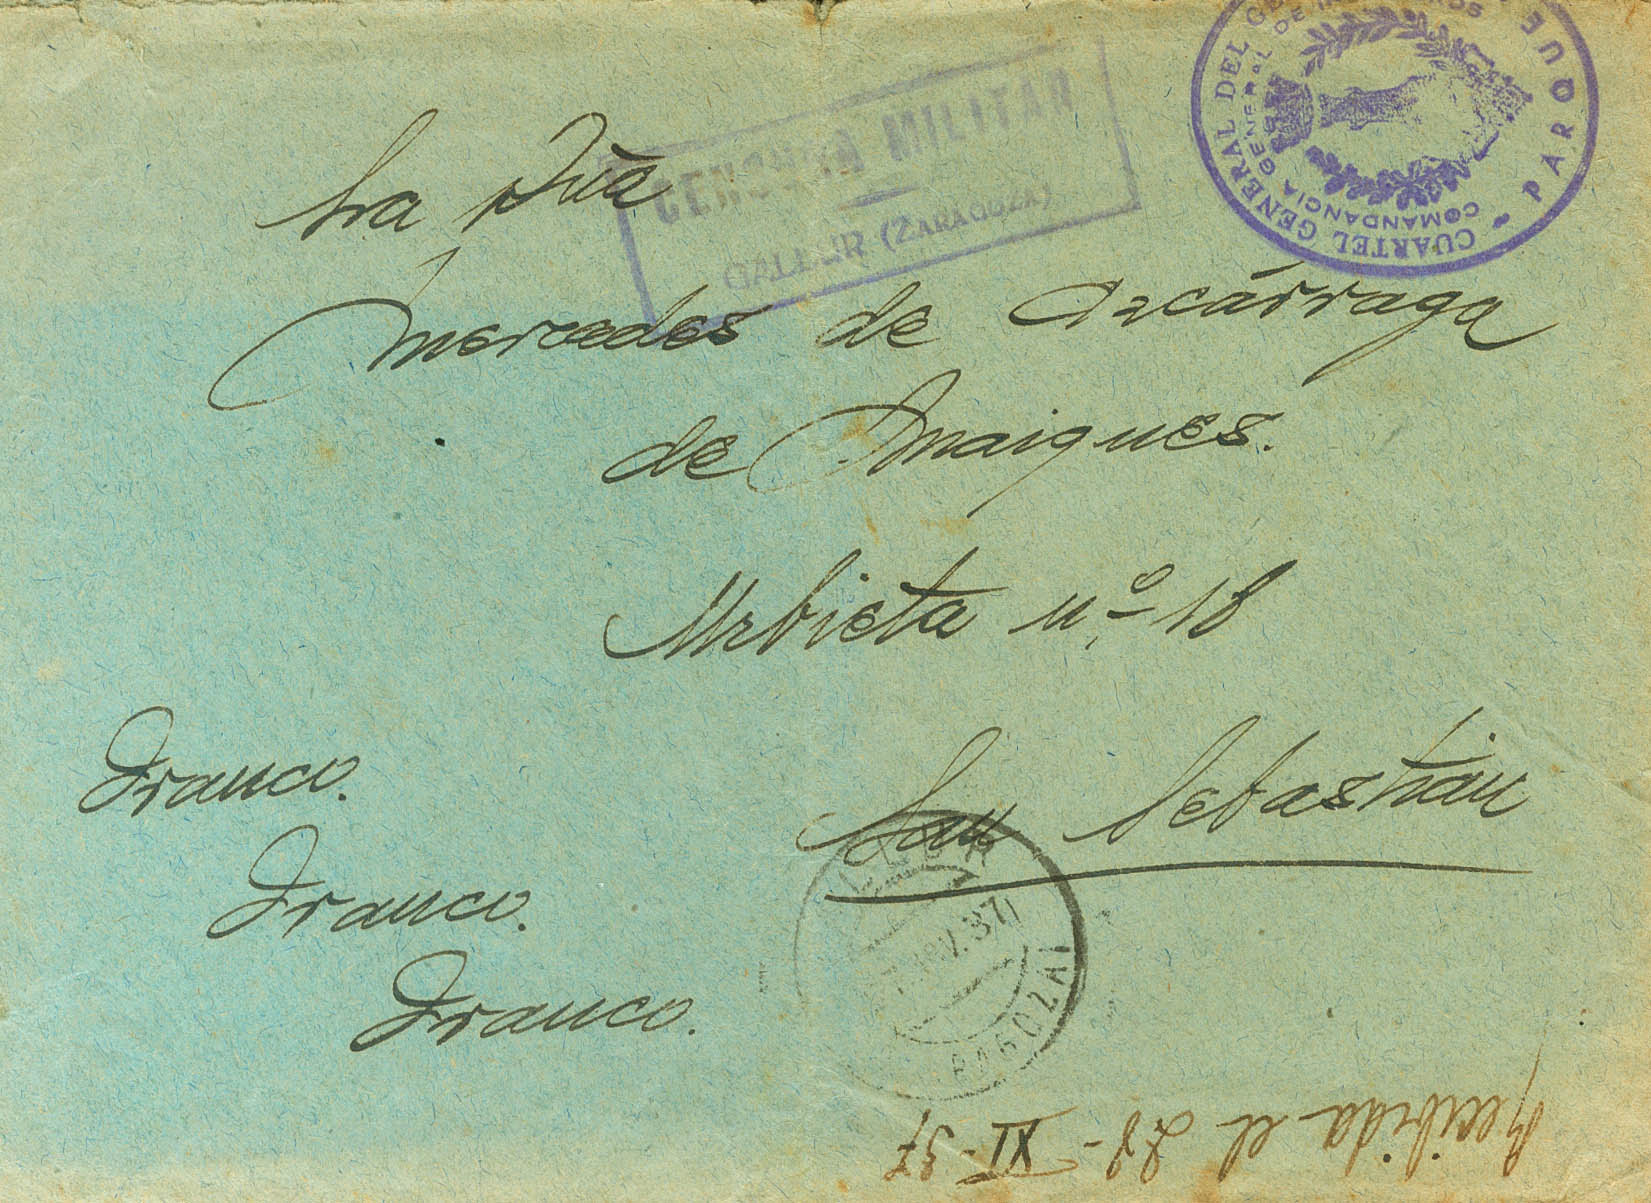 CENSURA MILITAR
GALLUR (ZARAGOZA)
CUARTEL GENERAL DEL
PARQUE
COMANDANCIA GENERAL DE
Sra Dña
Mercedes de Azcárraga
de Maigues.
Urbieta nº 18
San Sebastián
Franco.
Franco.
Franco.
NOV. 37
Recibida el 28-XI-37